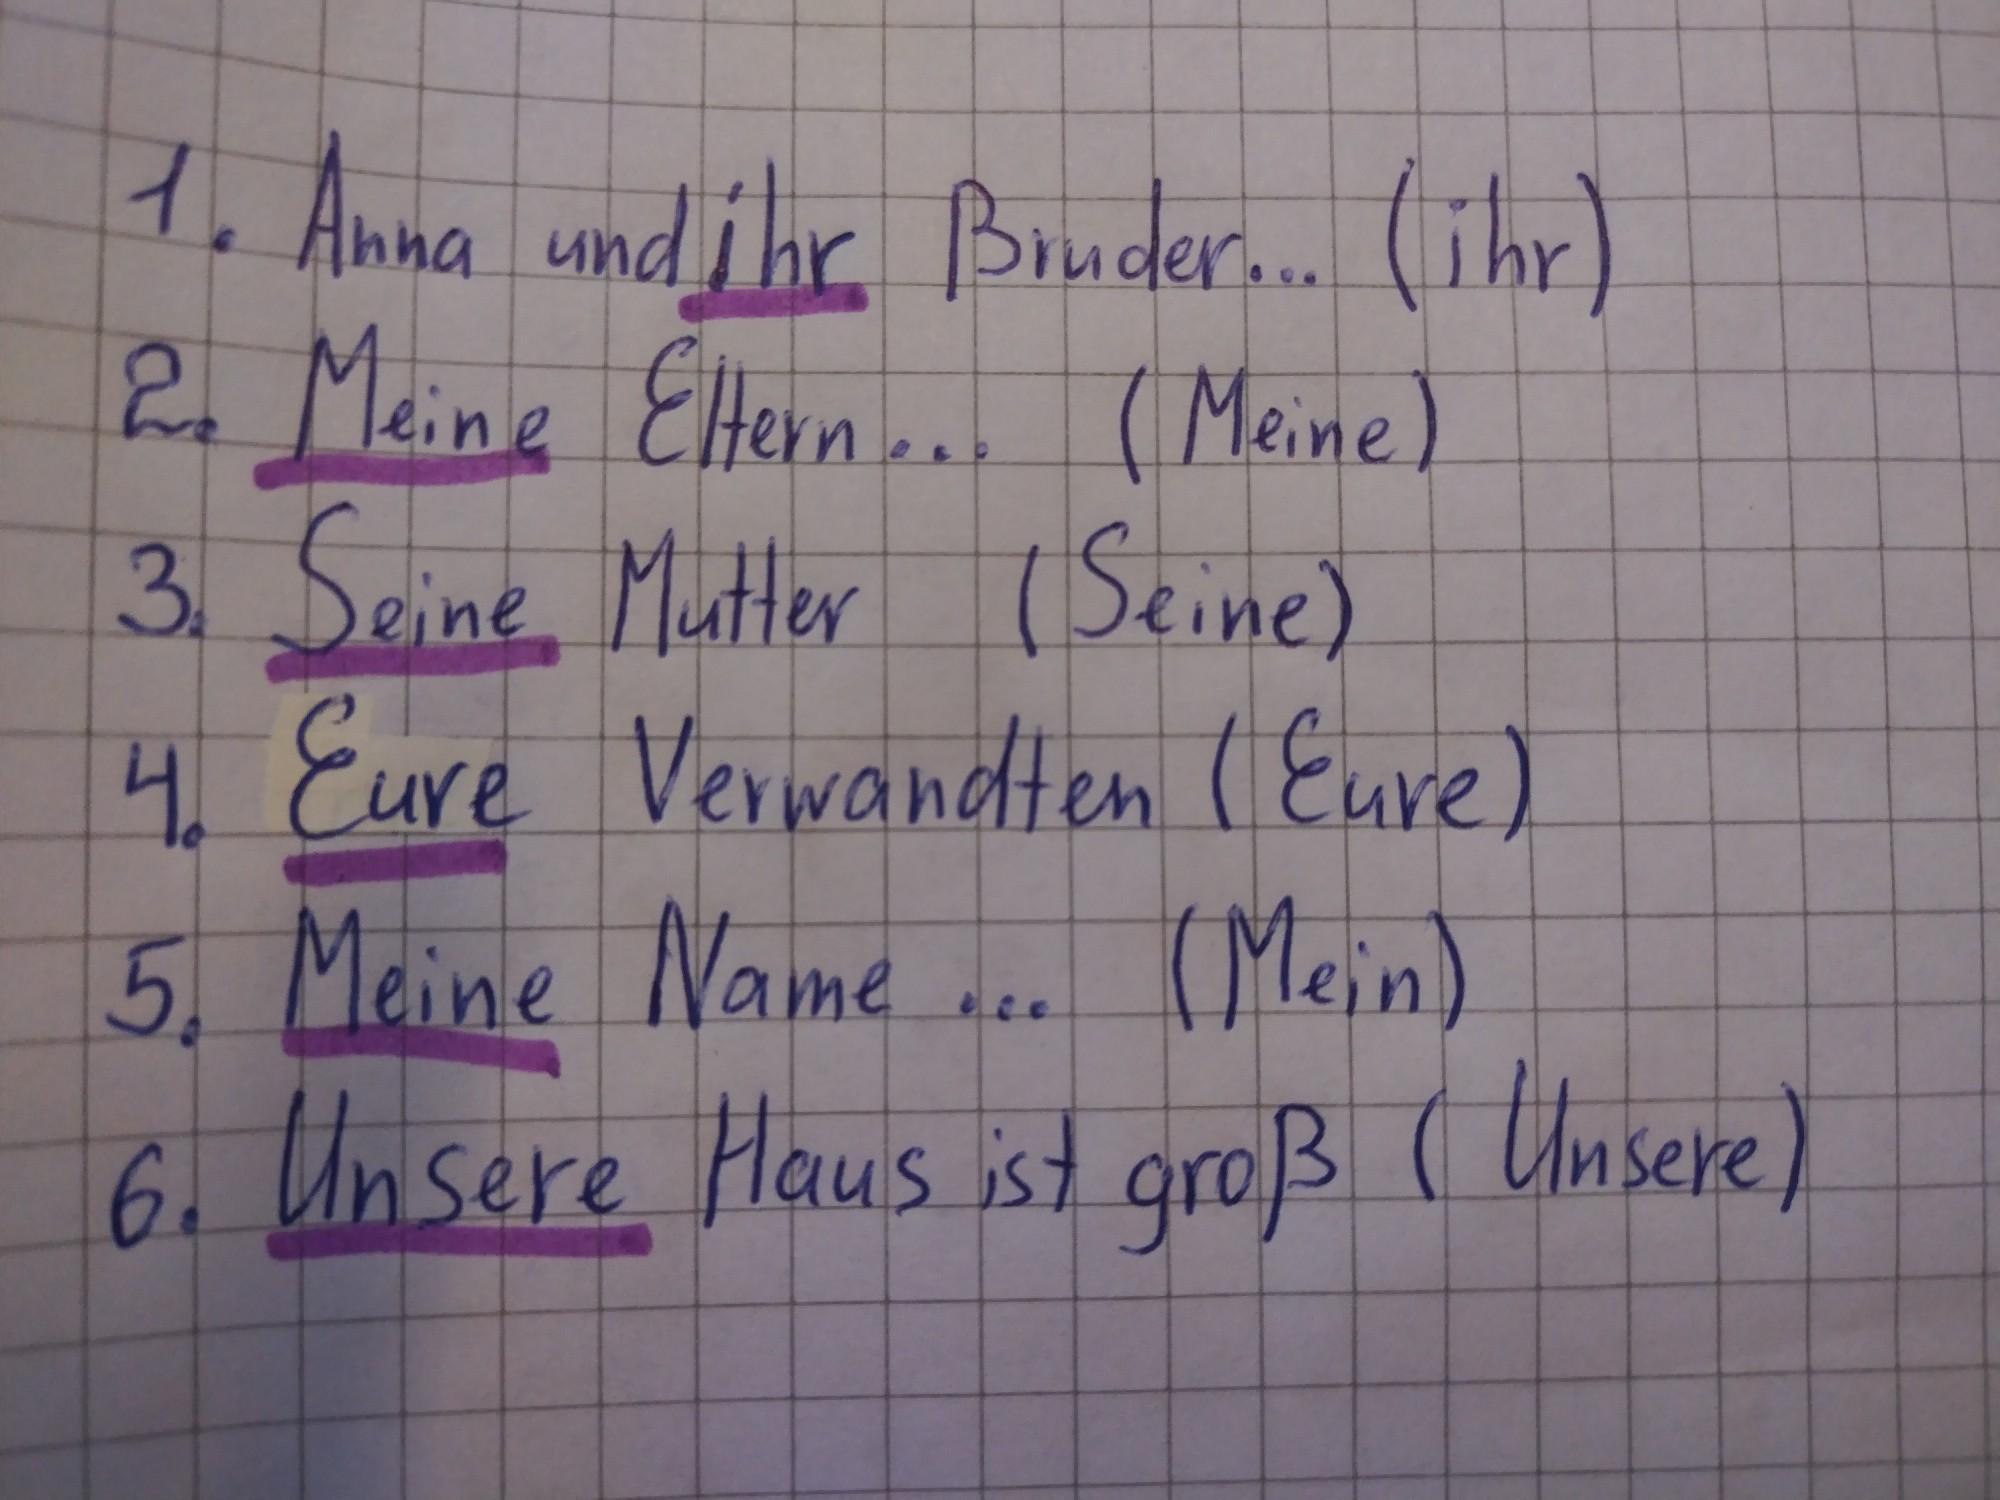 1. Anna und ihr Bruder... (ihr)
2. Meine Eltern... (Meine)
3. Seine Mutter (Seine)
4. Eure Verwandten (Eure)
5. Meine Name ... (Mein)
6. Unsere Haus ist groß (Unsere)